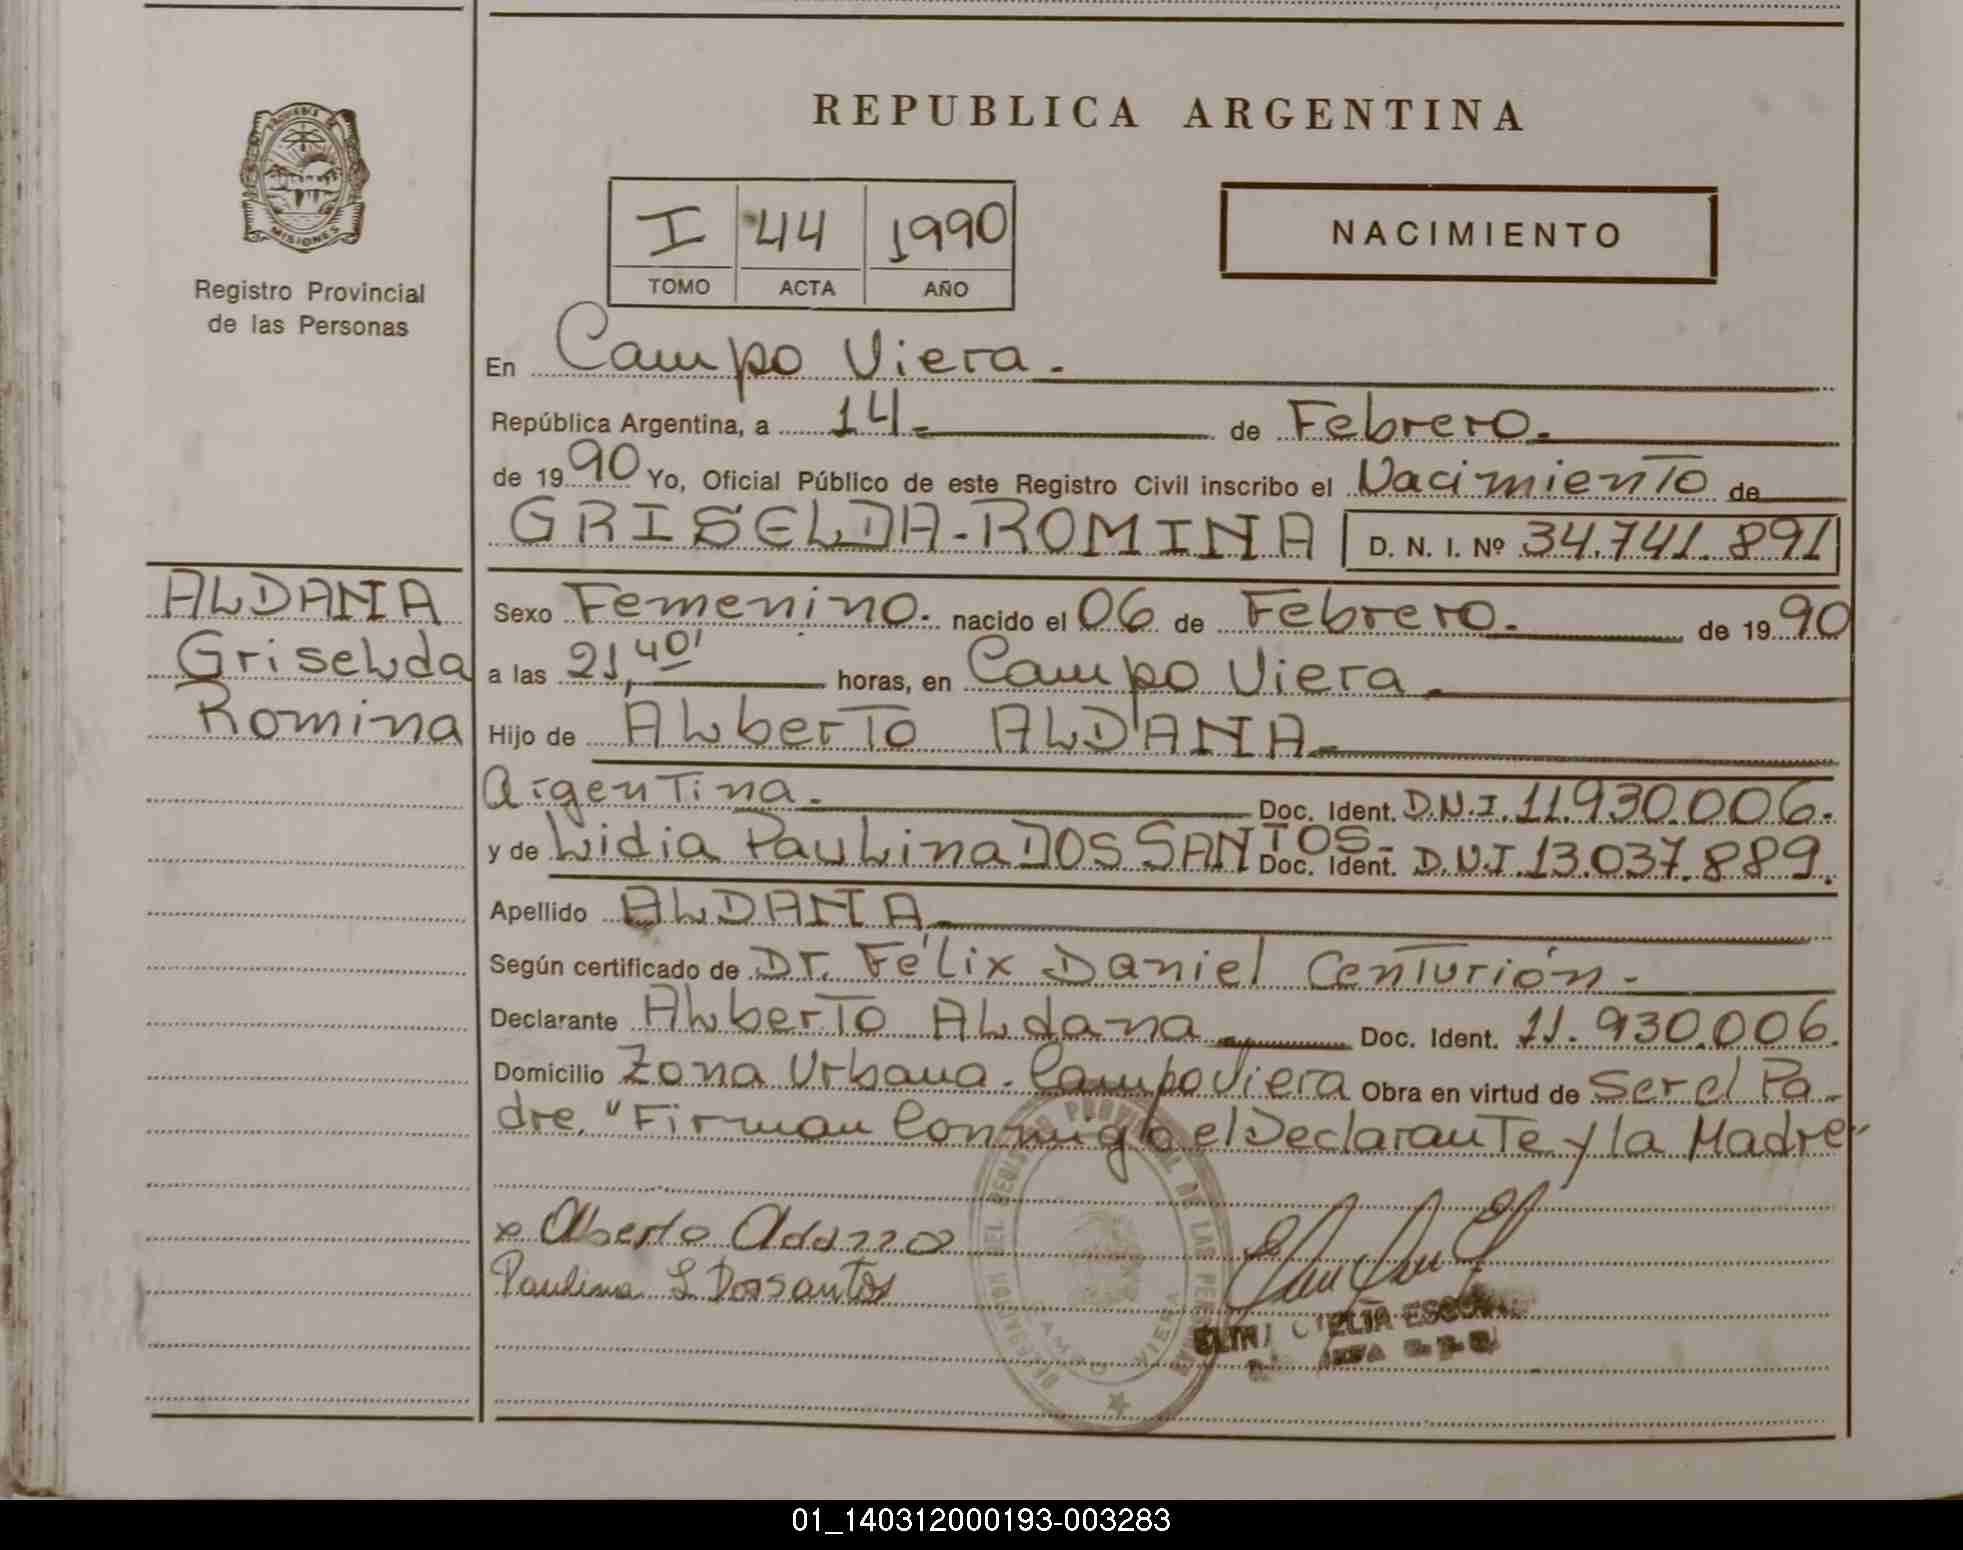 PROVINCIA DE
MISIONES
Registro Provincial
de las Personas
ALDANA
Griselda
Romina
REPUBLICA ARGENTINA
I 44 1990
TOMO ACTA AÑO
NACIMIENTO
En Campo Viera.
República Argentina, a 14 de Febrero.
de 1990 Yo, Oficial Público de este Registro Civil inscribo el Nacimiento de
GRISELDA-ROMINA D. N. I. Nº 34.741.891
Sexo Femenino. nacido el 06 de Febrero. de 1990
a las 21,40' horas, en Campo Viera
Hijo de Alberto ALDANA
Argentina. Doc. Ident. D.N.I. 11.930.006.
y de Lidia Paulina DOS SANTOS- Doc. Ident. D.N.I. 13.037.889.
Apellido ALDANA
Según certificado de Dr. Félix Daniel Centurión-
Declarante Alberto Aldana Doc. Ident. 11.930.006.
Domicilio Zona Urbana. Campo Viera Obra en virtud de Ser el Pa-
dre. "Firman Conmigo el Declarante y la Madre"
x Alberto
Paulina L Dossantos
DELEGACION DEL REGISTRO PROVINCIAL DE LAS PERSONAS
CAMPO VIERA
01_140312000193-003283